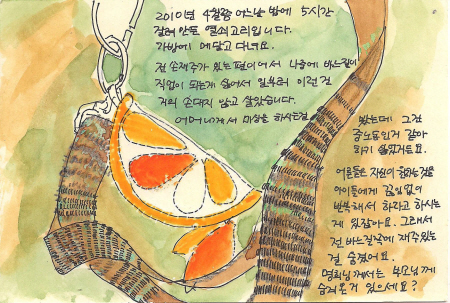 2010년 4월쯤 어느날 밤에 5시간
걸려 만든 열쇠고리입니다.
가방에 매달고 다녀요.
전 손재주가 있는 편이어서 나중에 바느질이
직업이 되는게 싫어서 일부러 이런건
거의 손대지 않고 살았습니다.
어머니께서 미싱을 하시는걸
봤는데 그건
중노동인거 같아
하기 싫었거든요.
어른들은 자신이 힘든것은
아이들에게 끊임없이
반복해서 하라고 하시는
게 있잖아요. 그래서
전 바느질질에 재주있는
걸 숨겼어요.
영희님께서는 부모님께
숨겨온거 있으세요?